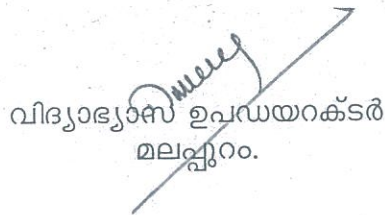 വിദ്യാഭ്യാസ ഉപഡയറക്ടർ
മലപ്പുറം.